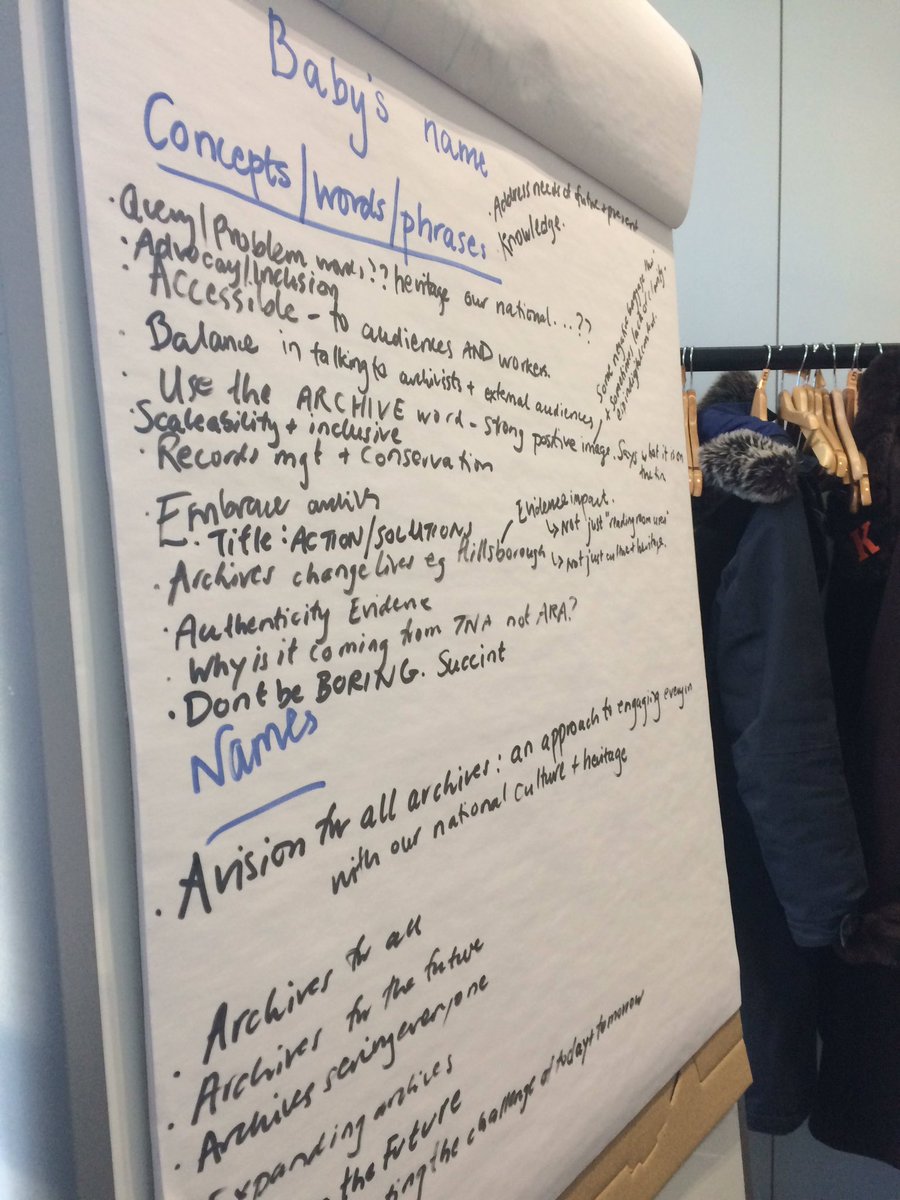 Baby's name
Concepts/words/phrases
· Address needs of future + present
Knowledge.
· Query/Problem words?? heritage our national...??
· Advocay/Inclusion
· Accessible - to audiences AND workers.
· Balance in talking to archivists + external audiences
Some negative baggage tho'
+ sometimes lack of clarity.
· Use the ARCHIVE word - strong positive image. Says what it is on
the tin
· Scaleability + inclusive
· Records mgt + conservation
Embrace
· Title: ACTION/SOLUTIONS
Evidence impact.
↳ Not just "reading room users"
↳ Not just culture + heritage.
· Archives change lives eg Hillsborough
· Authenticity Evidence
· Why is it coming from TNA not ARA?
· Dont be BORING. Succint
Names
· A vision for all archives: an approach to engaging
with our national culture + heritage
· Archives for all
· Archives for the future
· Archives serving everyone
Expanding archives
the future
the challenge of today + tomorrow
K